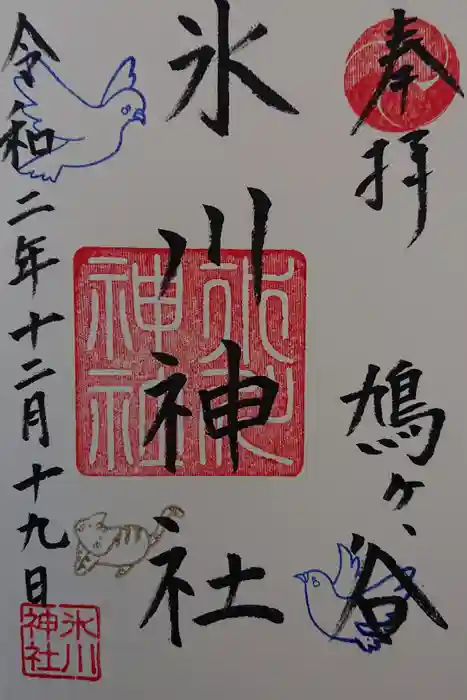 奉拝
鳩ヶ谷
氷川神社
令和二年十二月十九日
氷川神社
氷川神社